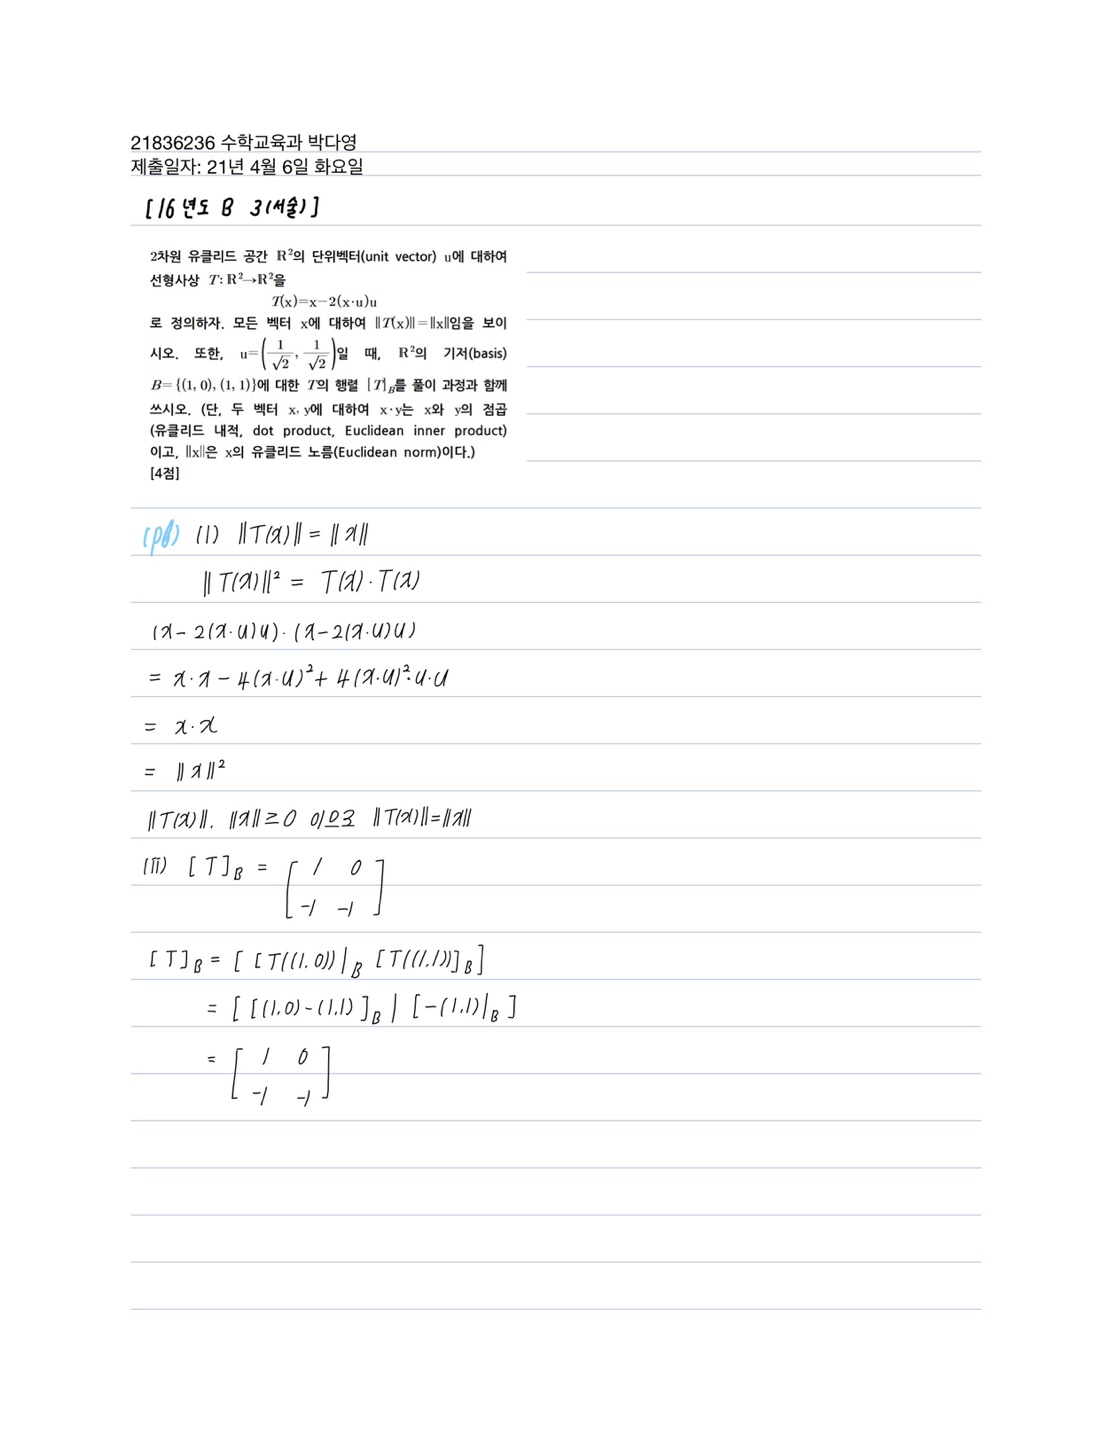 21836236 수학교육과 박다영
제출일자: 21년 4월 6일 화요일
[16년도 B 3(서술)]
2차원 유클리드 공간 ℝ²의 단위벡터(unit vector) u에 대하여
선형사상 T: ℝ²→ℝ²을
T(x)=x−2(x·u)u
로 정의하자. 모든 벡터 x에 대하여 ‖T(x)‖=‖x‖임을 보이
시오. 또한, u=(1/√2, 1/√2)일 때, ℝ²의 기저(basis)
B={(1, 0), (1, 1)}에 대한 T의 행렬 [T]_B를 풀이 과정과 함께
쓰시오. (단, 두 벡터 x, y에 대하여 x·y는 x와 y의 점곱
(유클리드 내적, dot product, Euclidean inner product)
이고, ‖x‖은 x의 유클리드 노름(Euclidean norm)이다.)
[4점]
(pf) (i) ‖T(x)‖ = ‖x‖
‖T(x)‖² = T(x)·T(x)
(x − 2(x·u)u)·(x − 2(x·u)u)
= x·x − 4(x·u)² + 4(x·u)²·u·u
= x·x
= ‖x‖²
‖T(x)‖, ‖x‖ ≥ 0 이으로 ‖T(x)‖=‖x‖
(ii) [T]_B = [ 1 0
-1 -1 ]
[T]_B = [ [T((1,0))|_B [T((1,1))]_B ]
= [ [(1,0)-(1,1)]_B | [-(1,1)|_B ]
= [ 1 0
-1 -1 ]